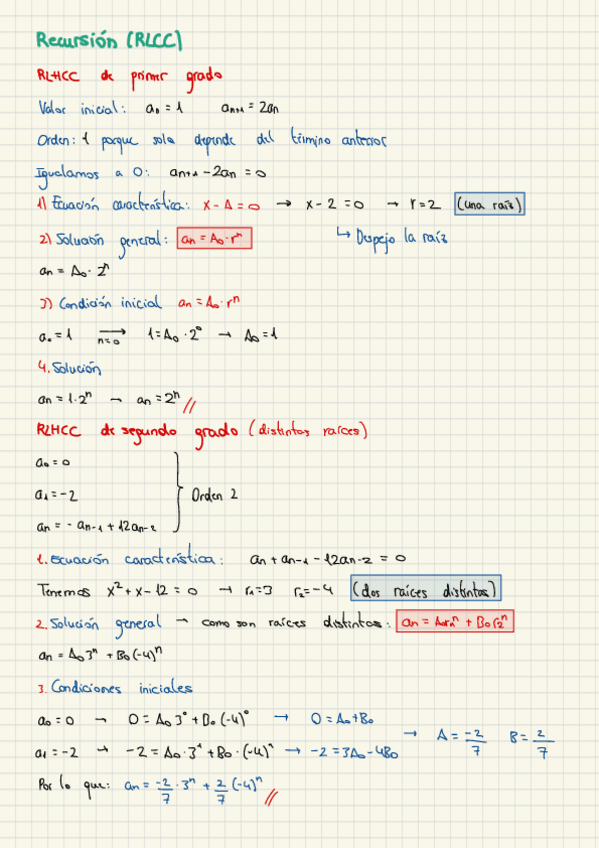 Recursión (RLCC)
RLHCC de primer grado
Valor inicial: a₀ = 1 aₙ₊₁ = 2aₙ
Orden: 1 porque solo depende del término anterior
Igualamos a 0: aₙ₊₁ - 2aₙ = 0
1) Ecuación característica: x - A = 0 → x - 2 = 0 → r = 2 (una raíz)
2) Solución general: aₙ = A₀ · rⁿ ↳ Despejo la raíz
aₙ = A₀ · 2ⁿ
3) Condición inicial aₙ = A₀ · rⁿ
a₀ = 1 →(n=0) 1 = A₀ · 2⁰ → A₀ = 1
4. Solución
aₙ = 1 · 2ⁿ → aₙ = 2ⁿ //
RLHCC de segundo grado (distintas raíces)
a₀ = 0
a₁ = -2 } Orden 2
aₙ = - aₙ₋₁ + 12aₙ₋₂
1. Ecuación característica: aₙ + aₙ₋₁ - 12aₙ₋₂ = 0
Tenemos x² + x - 12 = 0 → r₁ = 3 r₂ = -4 (dos raíces distintas)
2. Solución general → como son raíces distintas: aₙ = A₀r₁ⁿ + B₀r₂ⁿ
aₙ = A₀3ⁿ + B₀(-4)ⁿ
3. Condiciones iniciales
a₀ = 0 → 0 = A₀3⁰ + B₀(-4)⁰ → 0 = A₀ + B₀
a₁ = -2 → -2 = A₀ · 3¹ + B₀ · (-4)¹ → -2 = 3A₀ - 4B₀ → A = -2/7 B = 2/7
Por lo que: aₙ = -2/7 · 3ⁿ + 2/7 (-4)ⁿ //